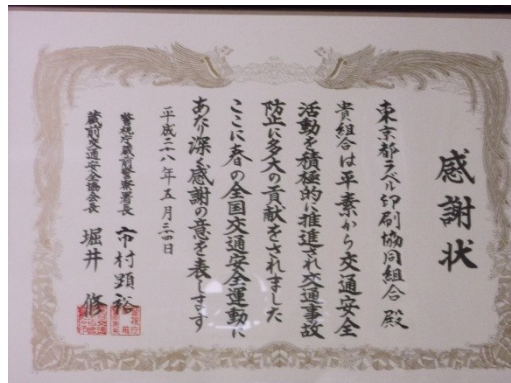 感謝状
東京都ラベル印刷協同組合 殿
貴組合は平素から交通安全
活動を積極的に推進され交通事故
防止に多大の貢献をされました
ここに春の全国交通安全運動に
あたり深く感謝の意を表します
平成二八年五月二四日
警視庁蔵前警察署長 市村顕裕
蔵前交通安全協会長 堀井 修